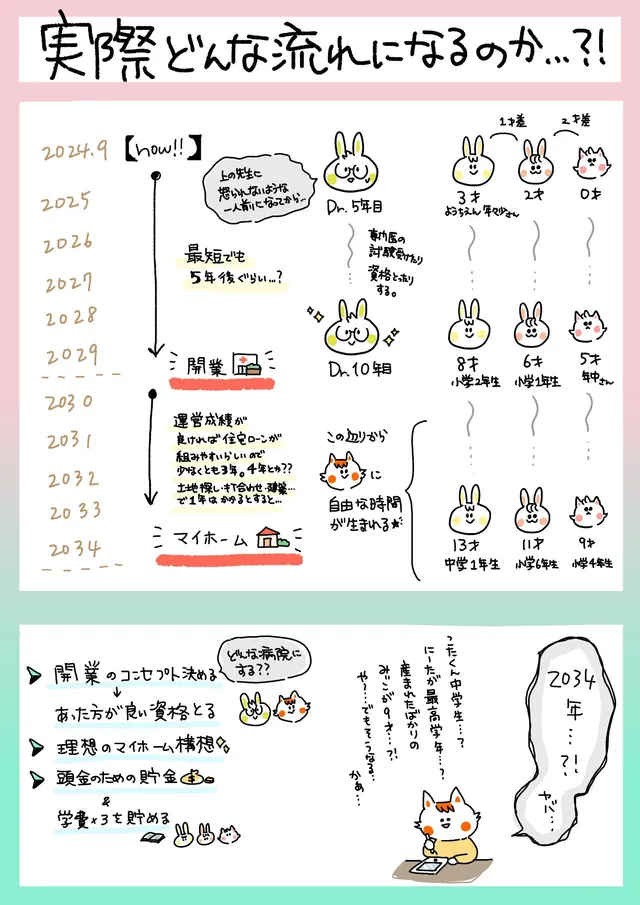 実際どんな流れになるのか…?!
2024.9 【now!!】
2025
2026
2027
2028
2029
2030
2031
2032
2033
2034
最短でも
5年後ぐらい…?
開業
運営成績が
良ければ住宅ローンが
組みやすいらしいので
少なくとも3年。4年とか??
土地探し・打ち合わせ・建築…
で1年はかかるとすると…
マイホーム
上の先生に
怒られないような
一人前になってから…
Dr. 5年目
専門医の
試験受けたり
資格とったり
する。
Dr. 10年目
この辺りから
に
自由な時間
が生まれる
1才差
2才差
3才
ようちえん 年少さん
2才
0才
8才
小学2年生
6才
小学1年生
5才
年中さん
13才
中学1年生
11才
小学6年生
9才
小学4年生
開業のコンセプト決める
どんな病院に
する??
あった方が良い資格とる
理想のマイホーム構想
頭金のための貯金
&
学費×3を貯める
ったくん中学生…?
にーたが最高学年…?
産まれたばかりの
みいこが9才…?!
や…でもそうなる…
かぁ…
2034
年…?!
ヤバ…